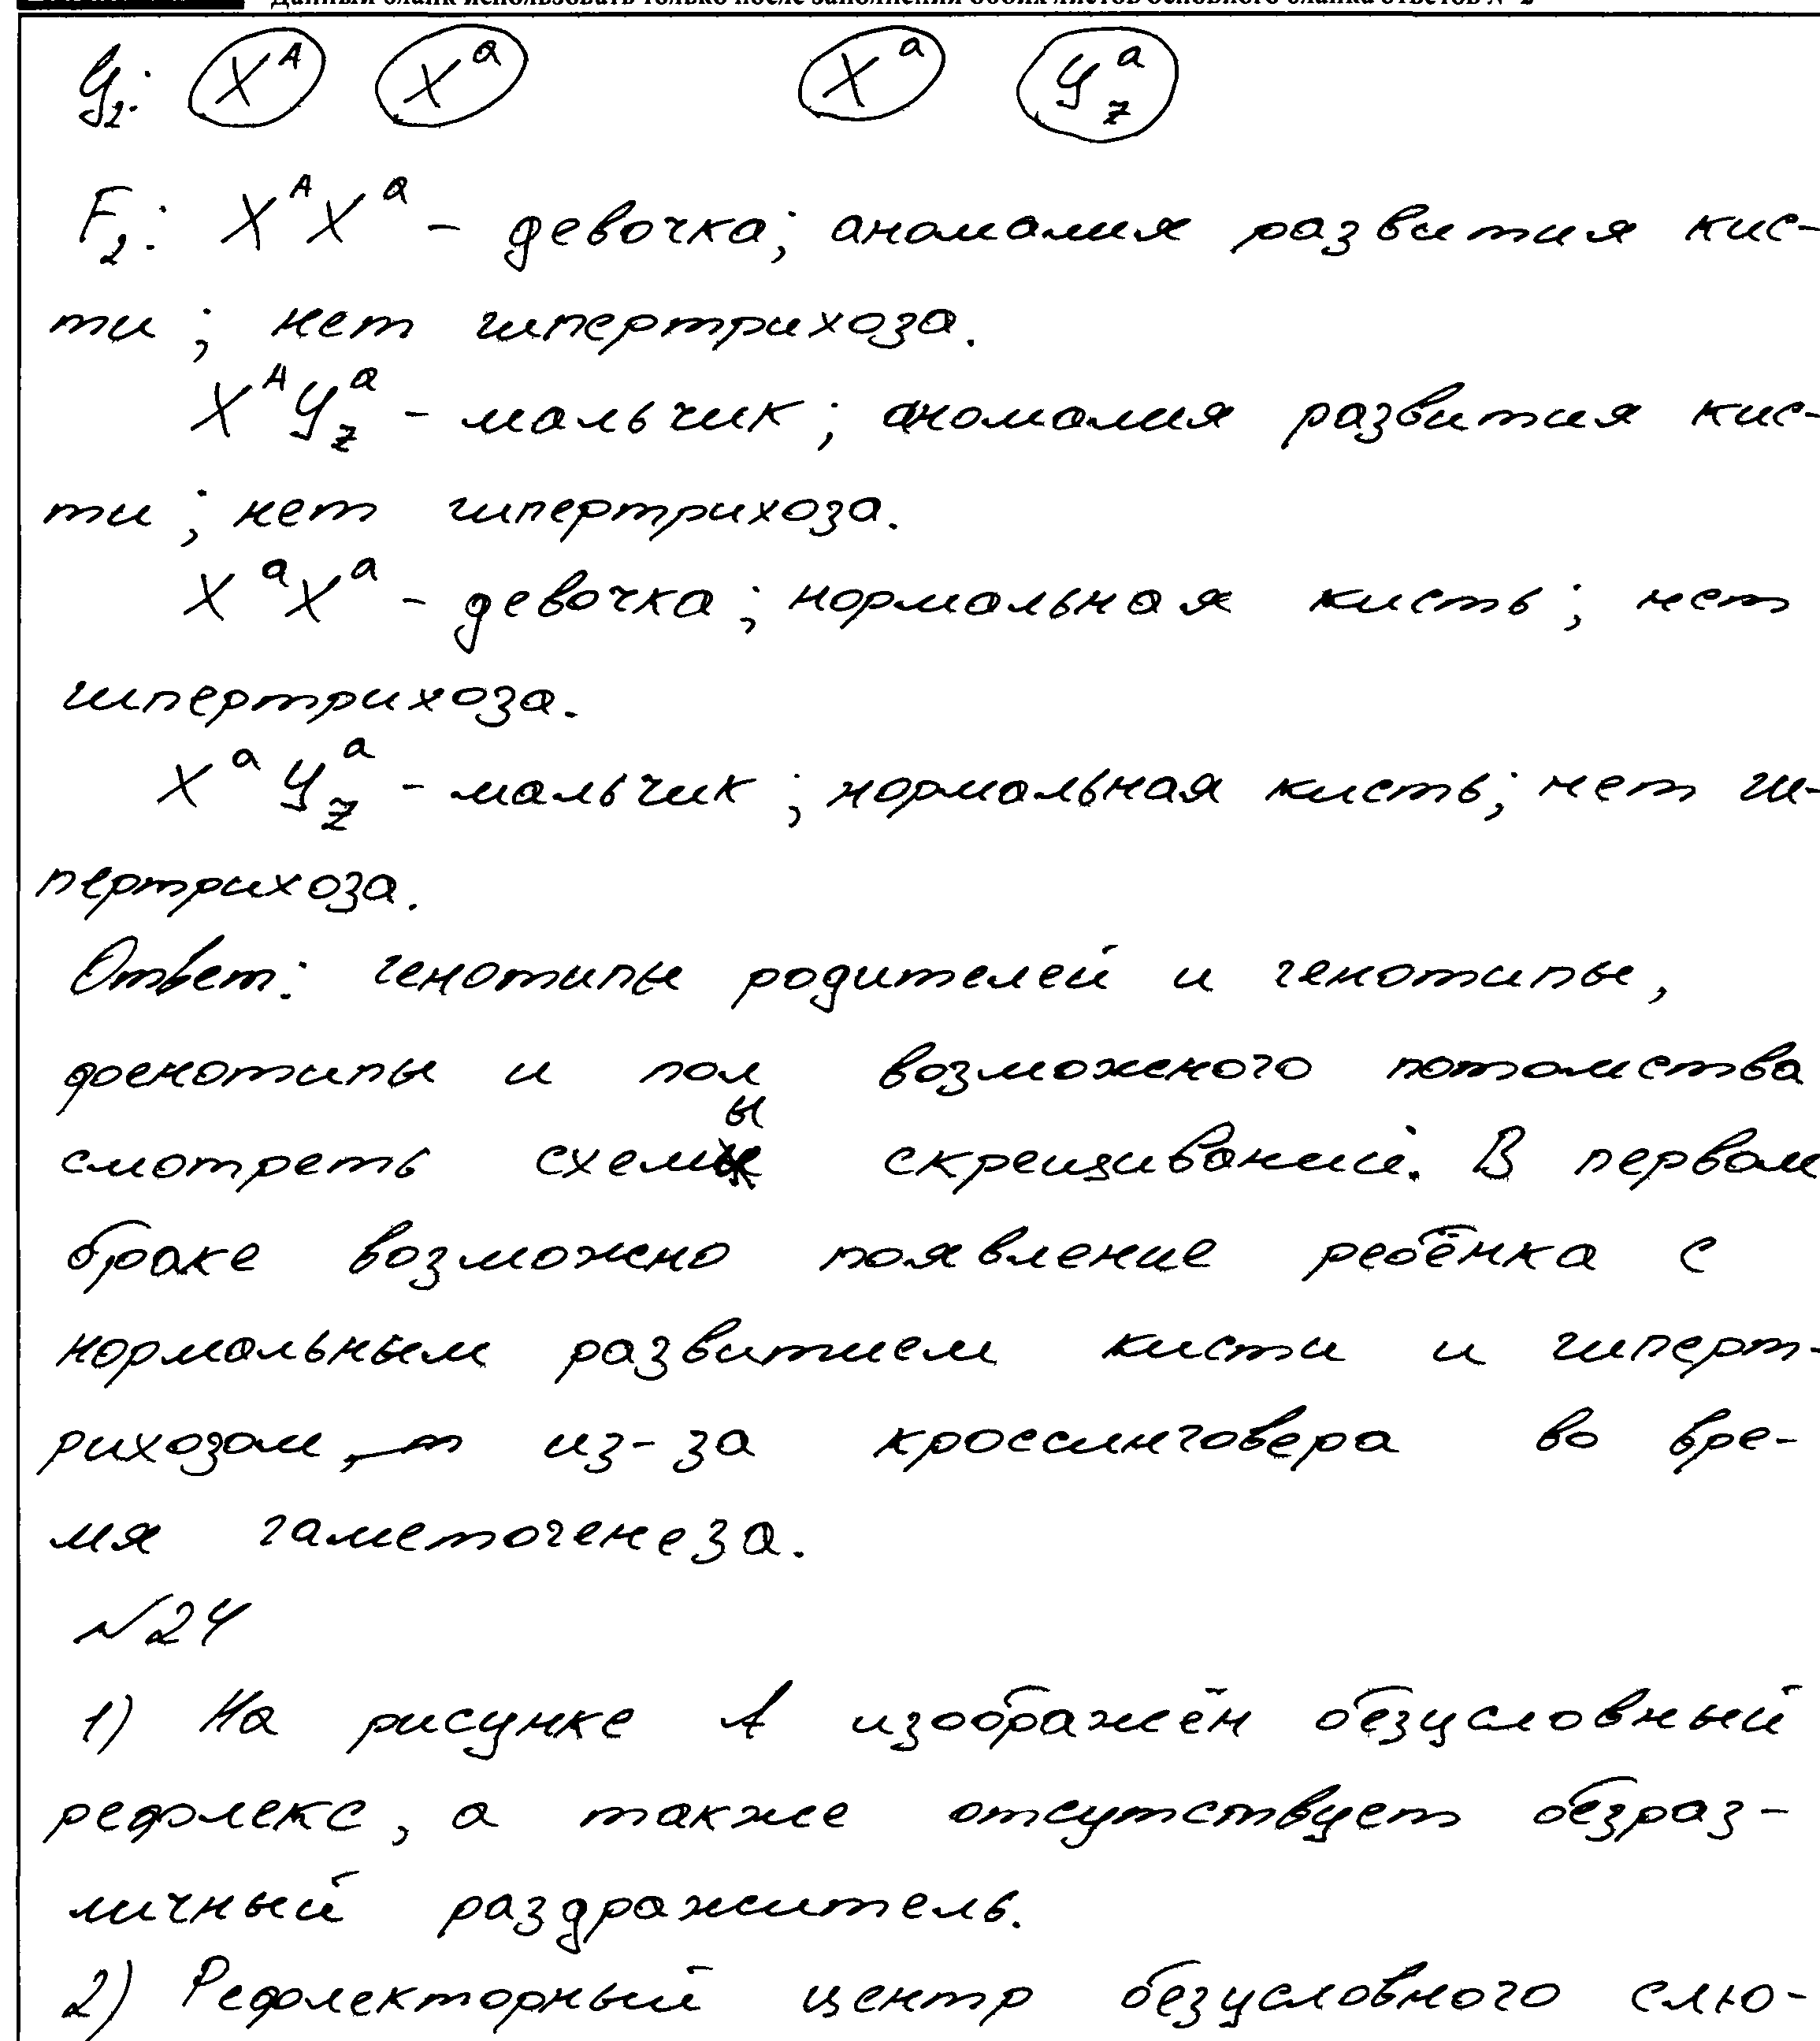 Данный бланк использовать только после заполнения обоих листов основного бланка ответов № 2
G₂: X^A X^a X^a Y_z^a
F₂: X^A X^a – девочка; аномалия развития кис-
ти; нет гипертрихоза.
X^A Y_z^a – мальчик; аномалия развития кис-
ти; нет гипертрихоза.
X^a X^a – девочка; нормальная кисть; нет
гипертрихоза.
X^a Y_z^a – мальчик; нормальная кисть; нет ги-
пертрихоза.
Ответ: генотипы родителей и генотипы,
фенотипы и пол возможного потомства
смотреть схемы скрещиваний. В первом
браке возможно появление ребёнка с
нормальным развитием кисти и гиперт-
рихозом, из-за кроссинговера во вре-
мя гаметогенеза.
№24
1) На рисунке А изображён безусловный
рефлекс, а также отсутствует безраз-
личный раздражитель.
2) Рефлекторный центр безусловного слю-